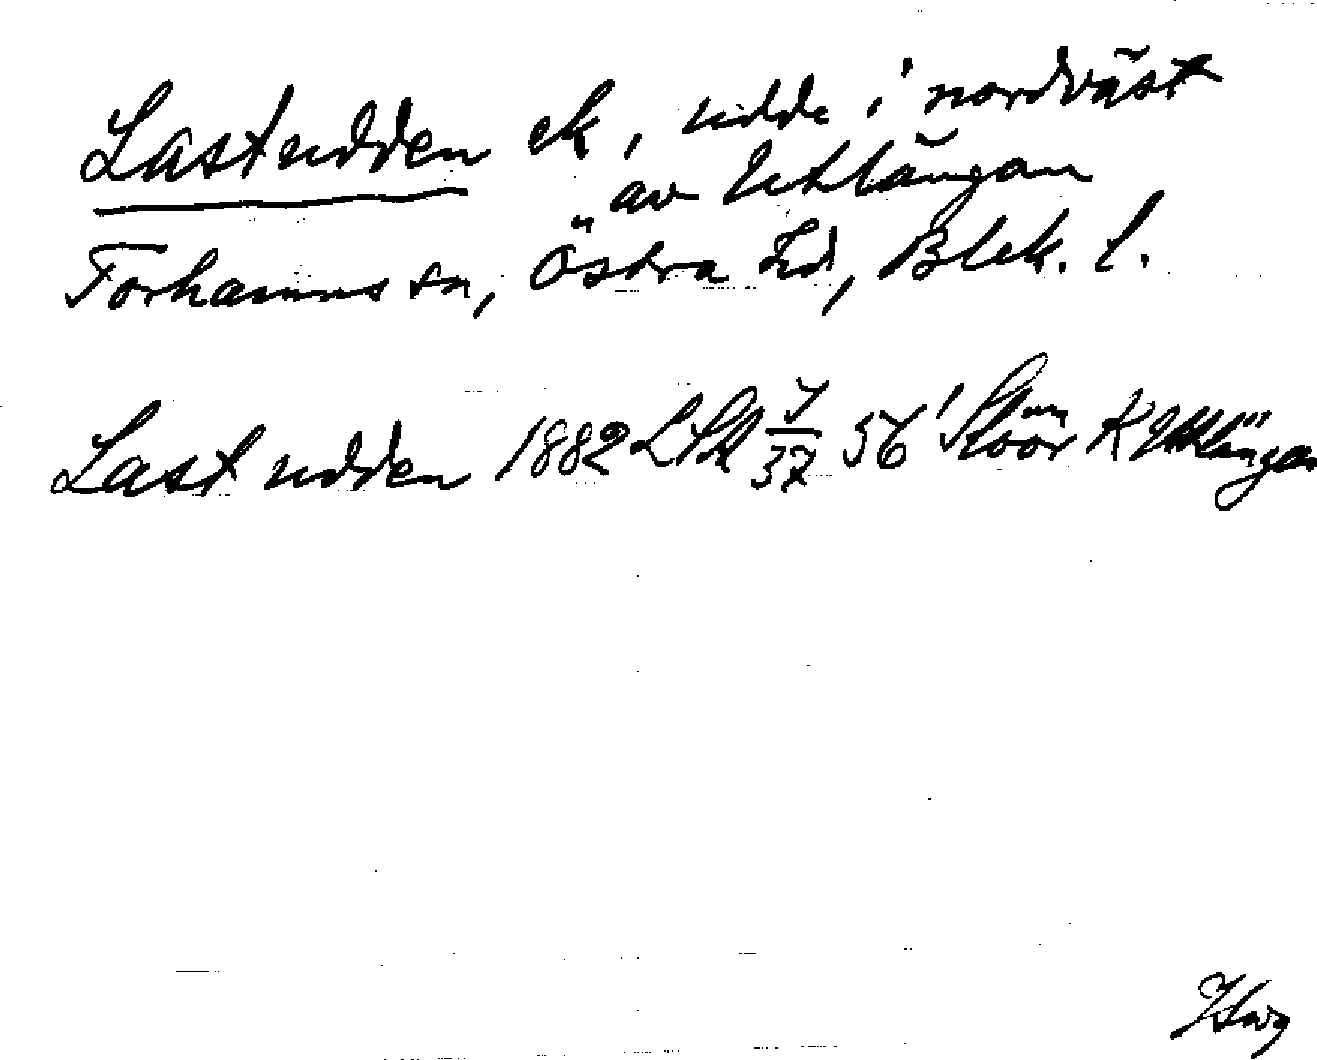 Lastudden ek, udde i nordväst
av Utlängan
Torhamns sn, Östra hd, Blek. l.
Last udden 1882 LSA 7/37 56' K Utlängan